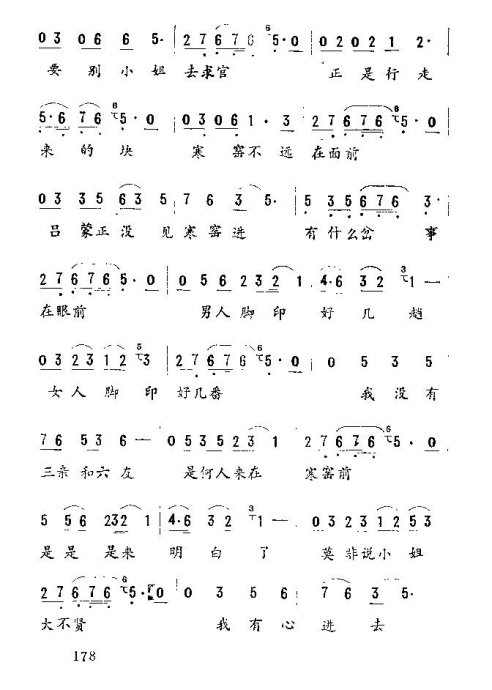 0 3 0 6 6 6 5· 2 7 6 7 6 6 5· 0 0 2 0 2 1 2·
要别小姐去求官 正是行走
5· 6 7 6 7 6 5· 0 0 3 0 6 1· 3 2 7 6 7 6 6 5· 0
来的块 寒窑不远在面前
0 3 3 5 6 3 5 7 6 3 5· 5 3 5 6 7 6 3·
吕蒙正没见寒窑进 有什么岔事
2 7 6 7 6 5· 0 0 5 6 2 3 2 1 4· 6 3 2 3 1 —
在眼前 男人脚印好几趟
0 3 2 3 1 2 5 3 2 7 6 7 6 6 5· 0 0 5 3 5
女人脚印好几番 我没有
7 6 5 3 6 — 0 5 3 5 2 3 1 2 7 6 7 6 6 5· 0
三亲和六友 是何人来在寒窑前
5 5 6 2 3 2 1 4· 6 3 2 3 1 — 0 3 2 3 1 2 5 3
是是是来明白了 莫非说小姐
2 7 6 7 6 6 5· 0 0 3 5 6 7 6 3 5·
大不贤 我有心进去
178